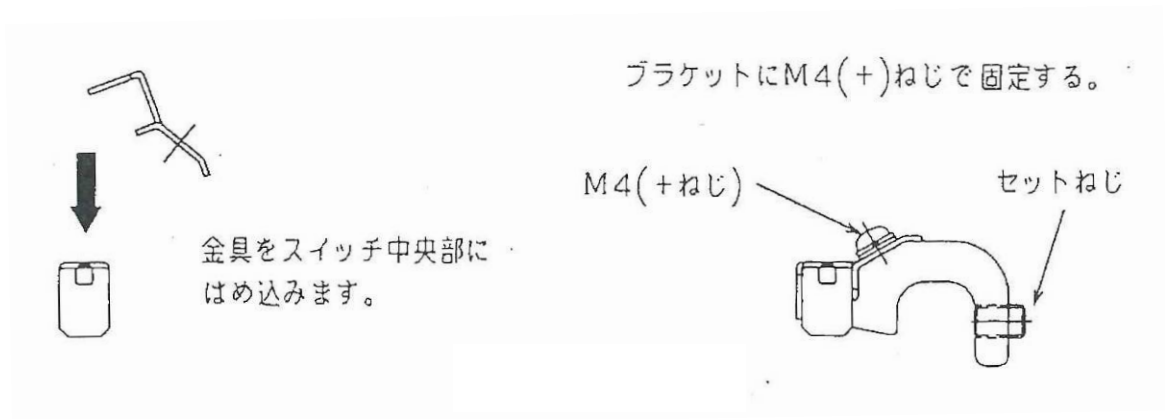 ブラケットにM4(+)ねじで固定する。
M4(+ねじ)
セットねじ
金具をスイッチ中央部に
はめ込みます。